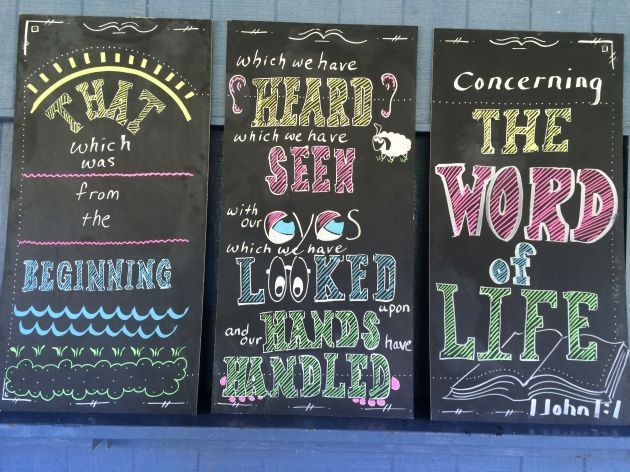 THAT
which
was
from
the
BEGINNING
which we have
HEARD
which we have
SEEN
with
our eyes
which we have
LOOKED
upon
and
our HANDS have
HANDLED
Concerning
THE
WORD
of
LIFE
1 John 1:1